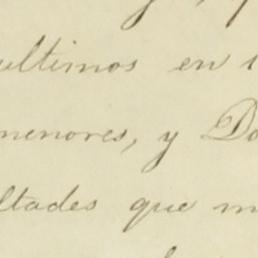 ultimos en
menores, y Do
ltades que m